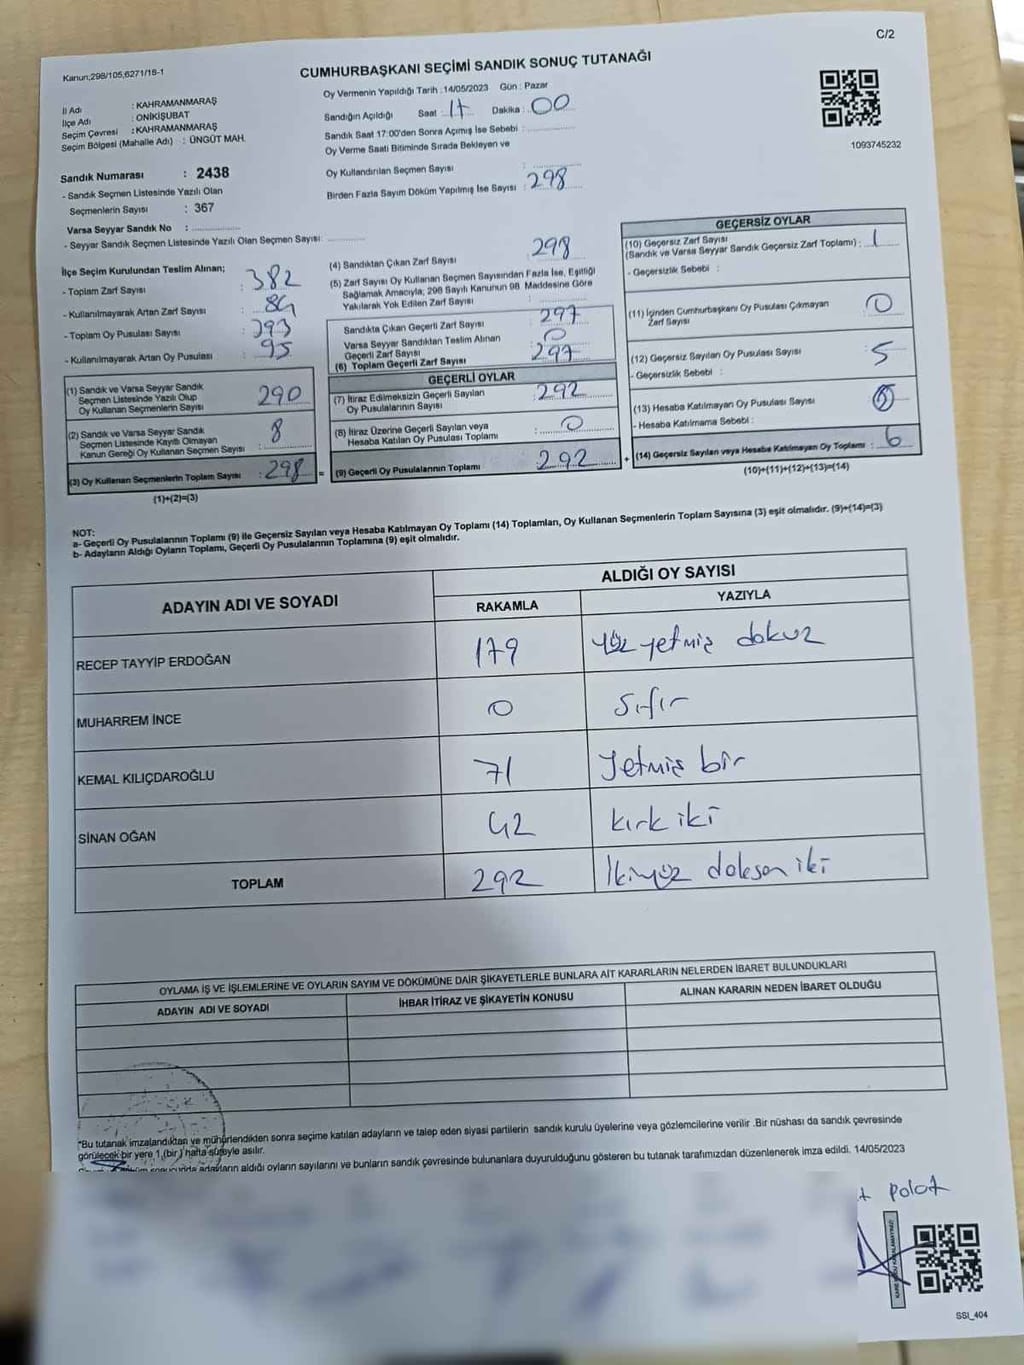 C/2
Kanun;298/105,6271/18-1
CUMHURBAŞKANI SEÇİMİ SANDIK SONUÇ TUTANAĞI
İl Adı : KAHRAMANMARAŞ
İlçe Adı : ONİKİŞUBAT
Seçim Çevresi : KAHRAMANMARAŞ
Seçim Bölgesi (Mahalle Adı) : ÜNGÜT MAH.
Oy Vermenin Yapıldığı Tarih :14/05/2023 Gün : Pazar
Sandığın Açıldığı Saat : 17 Dakika : 00
Sandık Saat 17:00'den Sonra Açımış İse Sebebi :
Oy Verme Saati Bitiminde Sırada Bekleyen ve
Oy Kullandırılan Seçmen Sayısı :
Birden Fazla Sayım Döküm Yapılmış İse Sayısı : 298
1093745232
Sandık Numarası : 2438
- Sandık Seçmen Listesinde Yazılı Olan
Seçmenlerin Sayısı : 367
Varsa Seyyar Sandık No :
- Seyyar Sandık Seçmen Listesinde Yazılı Olan Seçmen Sayısı:
İlçe Seçim Kurulundan Teslim Alınan;
- Toplam Zarf Sayısı : 382
- Kullanılmayarak Artan Zarf Sayısı : 84
- Toplam Oy Pusulası Sayısı : 393
- Kullanılmayarak Artan Oy Pusulası : 95
(1) Sandık ve Varsa Seyyar Sandık
Seçmen Listesinde Yazılı Olup
Oy Kullanan Seçmenlerin Sayısı : 290
(2) Sandık ve Varsa Seyyar Sandık
Seçmen Listesinde Kayıtlı Olmayan
Kanun Gereği Oy Kullanan Seçmen Sayısı : 8
(3) Oy Kullanan Seçmenlerin Toplam Sayısı : 298 =
(1)+(2)=(3)
(4) Sandıktan Çıkan Zarf Sayısı : 298
(5) Zarf Sayısı Oy Kullanan Seçmen Sayısından Fazla İse, Eşitliği
Sağlamak Amacıyla; 298 Sayılı Kanunun 98. Maddesine Göre
Yakılarak Yok Edilen Zarf Sayısı :
Sandıkta Çıkan Geçerli Zarf Sayısı : 297
Varsa Seyyar Sandıktan Teslim Alınan
Geçerli Zarf Sayısı : 0
(6) Toplam Geçerli Zarf Sayısı : 297
GEÇERLİ OYLAR
(7) İtiraz Edilmeksizin Geçerli Sayılan
Oy Pusulalarının Sayısı : 292
(8) İtiraz Üzerine Geçerli Sayılan veya
Hesaba Katılan Oy Pusulası Toplamı : 0
(9) Geçerli Oy Pusulalarının Toplamı : 292 +
GEÇERSİZ OYLAR
(10) Geçersiz Zarf Sayısı
(Sandık ve Varsa Seyyar Sandık Geçersiz Zarf Toplamı) : 1
- Geçersizlik Sebebi :
(11) İçinden Cumhurbaşkanı Oy Pusulası Çıkmayan
Zarf Sayısı : 0
(12) Geçersiz Sayılan Oy Pusulası Sayısı : 5
- Geçersizlik Sebebi :
(13) Hesaba Katılmayan Oy Pusulası Sayısı :
- Hesaba Katılmama Sebebi :
(14) Geçersiz Sayılan veya Hesaba Katılmayan Oy Toplamı : 6
(10)+(11)+(12)+(13)=(14)
NOT:
a- Geçerli Oy Pusulalarının Toplamı (9) ile Geçersiz Sayılan veya Hesaba Katılmayan Oy Toplamı (14) Toplamları, Oy Kullanan Seçmenlerin Toplam Sayısına (3) eşit olmalıdır. (9)+(14)=(3)
b- Adayların Aldığı Oyların Toplamı, Geçerli Oy Pusulalarının Toplamına (9) eşit olmalıdır.
ADAYIN ADI VE SOYADI
ALDIĞI OY SAYISI
RAKAMLA YAZIYLA
RECEP TAYYİP ERDOĞAN 179 Yüz yetmiş dokuz
MUHARREM İNCE 0 Sıfır
KEMAL KILIÇDAROĞLU 71 Yetmiş bir
SİNAN OĞAN 42 kırk iki
TOPLAM 292 İkiyüz doksan iki
OYLAMA İŞ VE İŞLEMLERİNE VE OYLARIN SAYIM VE DÖKÜMÜNE DAİR ŞİKAYETLERLE BUNLARA AİT KARARLARIN NELERDEN İBARET BULUNDUKLARI
ADAYIN ADI VE SOYADI İHBAR İTİRAZ VE ŞİKAYETİN KONUSU ALINAN KARARIN NEDEN İBARET OLDUĞU
*Bu tutanak imzalandıktan ve mühürlendikten sonra seçime katılan adayların ve talep eden siyasi partilerin sandık kurulu üyelerine veya gözlemcilerine verilir .Bir nüshası da sandık çevresinde
görülecek bir yere 1 (bir) hafta süreyle asılır.
adayların aldığı oyların sayılarını ve bunların sandık çevresinde bulunanlara duyurulduğunu gösteren bu tutanak tarafımızdan düzenlenerek imza edildi. 14/05/2023
t Polat
SSI_404